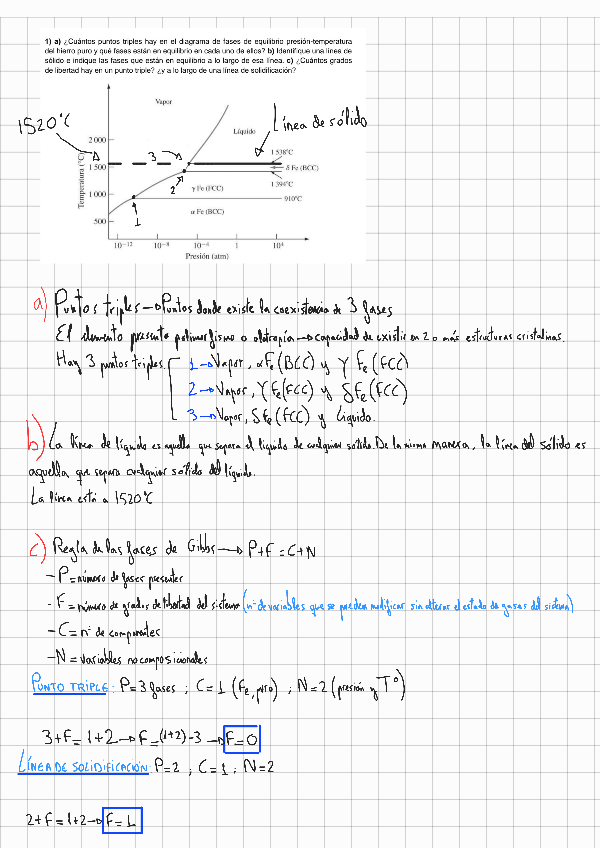 1) a) ¿Cuántos puntos triples hay en el diagrama de fases de equilibrio presión-temperatura
del hierro puro y qué fases están en equilibrio en cada uno de ellos? b) Identifique una línea de
sólido e indique las fases que están en equilibrio a lo largo de esa línea. c) ¿Cuántos grados
de libertad hay en un punto triple? ¿y a lo largo de una línea de solidificación?
Vapor
1520°C
Líquido
Línea de sólido
2 000
3
1.538°C
1 500
δ Fe (BCC)
2
γ Fe (FCC)
1.394°C
1 000
910°C
1
α Fe (BCC)
500
Temperatura (°C)
10⁻¹² 10⁻⁸ 10⁻⁴ 1 10⁴
Presión (atm)
a) Puntos triples → Puntos donde existe la coexistencia de 3 fases
El elemento presenta polimorfismo o alotropía → capacidad de existir en 2 o más estructuras cristalinas.
Hay 3 puntos triples
1 → Vapor, αFe (BCC) y γ Fe (FCC)
2 → Vapor, γFe (FCC) y δFe (FCC)
3 → Vapor, δFe (FCC) y Líquido.
b) La línea de líquido es aquella que separa el líquido de cualquier sólido. De la misma manera, la línea del sólido es
aquella que separa cualquier sólido del líquido.
La línea está a 1520°C
c) Regla de las fases de Gibbs → P+F=C+N
- P= número de fases presentes
- F= número de grados de libertad del sistema (nº de variables que se pueden modificar sin alterar el estado de fases del sistema)
- C= nº de componentes
- N= variables no composicionales
PUNTO TRIPLE: P=3 fases ; C=1 (Fe, puro) ; N=2 (presión y Tº)
3+F=1+2 → F=(1+2)-3 → F=0
LÍNEA DE SOLIDIFICACIÓN: P=2 ; C=1 ; N=2
2+F=1+2 → F=1